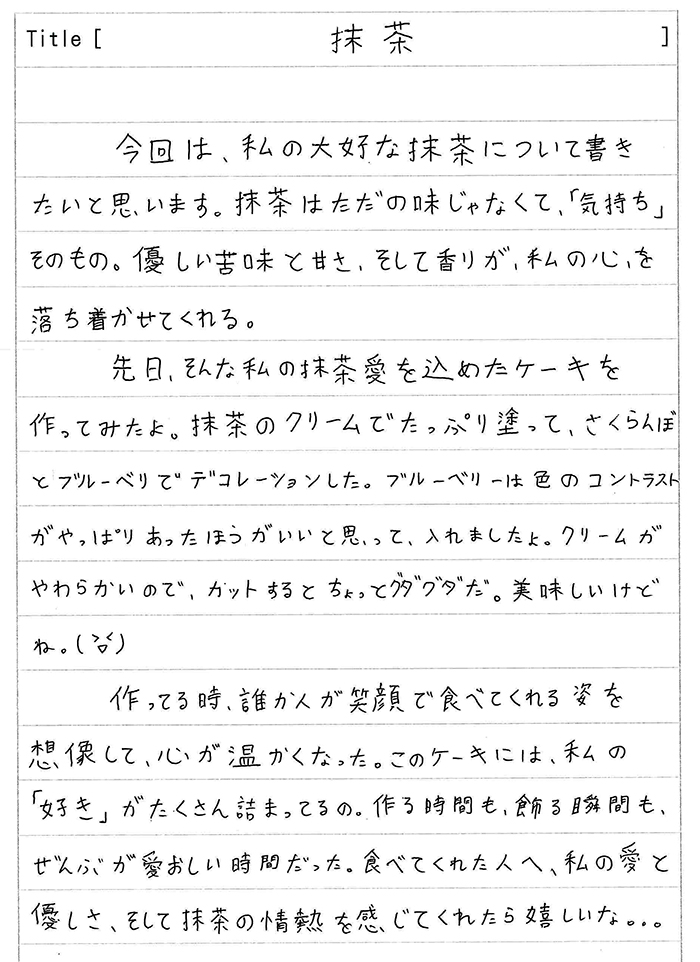 Title [ 抹茶 ]
今回は、私の大好な抹茶について書き
たいと思います。抹茶はただの味じゃなくて、「気持ち」
そのもの。優しい苦味と甘さ、そして香りが、私の心を
落ち着かせてくれる。
先日、そんな私の抹茶愛を込めたケーキを
作ってみたよ。抹茶のクリームでたっぷり塗って、さくらんぼ
とブルーベリでデコレーションした。ブルーベリーは色のコントラスト
がやっぱりあったほうがいいと思って、入れましたよ。クリームが
やわらかいので、カットするとちょっとグダグダだ。美味しいけど
ね。(
作ってる時、誰か人が笑顔で食べてくれる姿を
想像して、心が温かくなった。このケーキには、私の
「好き」がたくさん詰まってるの。作る時間も、飾る瞬間も、
ぜんぶが愛おしい時間だった。食べてくれた人へ、私の愛と
優しさ、そして抹茶の情熱を感じてくれたら嬉しいな。。。